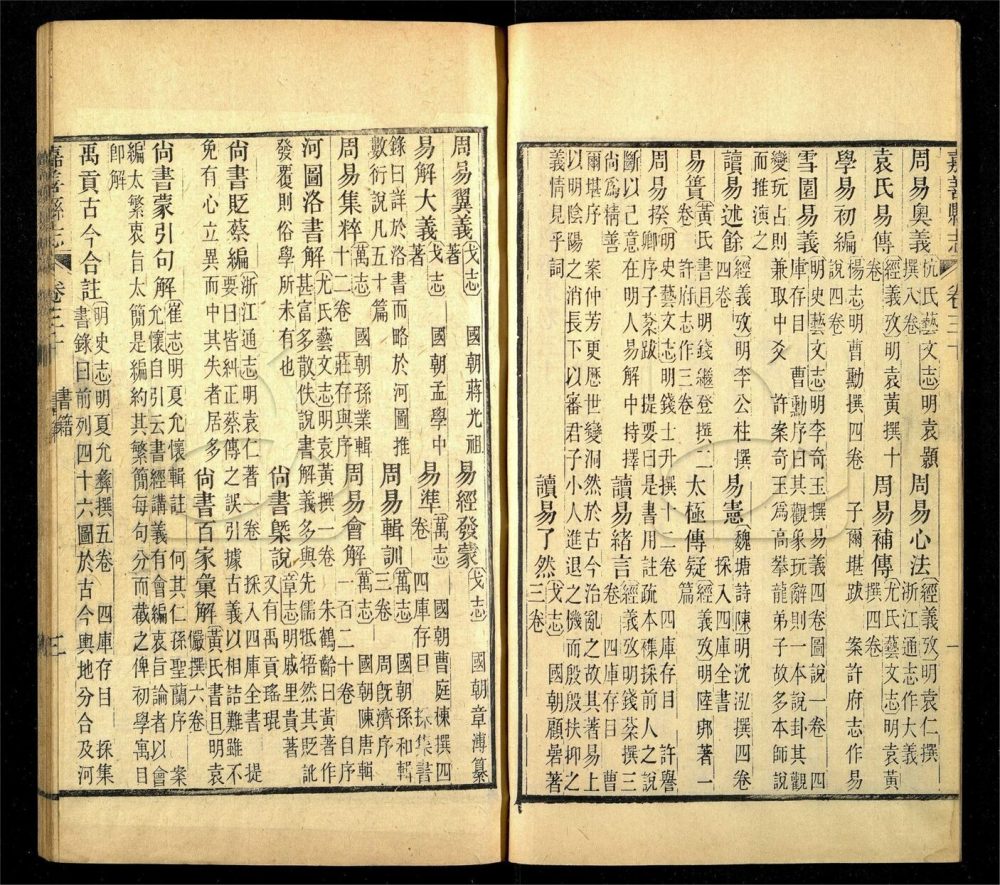 嘉善縣志 卷三十
周易奧義 杭氏藝文志明袁顥撰八卷 周易心法 經義攷明袁仁撰 浙江通志作大義
袁氏易傳 經義攷明袁黃撰十卷 周易補傳 尤氏藝文志明袁黃撰四卷
學易初編 楊志明曹勳撰四卷 子爾堪跋 案許府志作易說四卷
雪園易義 明史藝文志明李奇玉撰易義四卷圖說一卷 四庫存目 曹勳序曰其觀象玩辭則一本說卦其觀變玩占則兼取中爻 許案奇玉為高攀龍弟子故多本師說而推演之
讀易述餘 經義攷明李公柱撰四卷 易憲 魏塘詩陳明沈泓撰四卷 採入四庫全書
易簣 黃氏書目明錢繼登撰二卷 許府志作三卷 太極傳疑 經義攷明陸鄉著一篇
周易揆 明史藝文志明錢士升撰十二卷 四庫存目 許譽卿序子棻跋 提要曰是書用註疏本襍採前人之說斷以己意在明人易解中持擇尚為精善 讀易緒言 經義攷明錢棻撰三卷 四庫存目 曹爾堪序 案仲芳更歷世變洞然於古今治亂之故其著易上以明陰陽之消長下以審君子小人進退之機而殷殷扶抑之義情見乎詞 讀易了然 戈志 國朝顧罍著三卷
一
周易翼義 戈志 國朝蔣尤祖著 易經發蒙 戈志 國朝章溥纂
易解大義 戈志 國朝孟學中著 易準 萬志 國朝曹庭棟撰四卷 四庫存目 採集書錄曰詳於洛書而略於河圖推數衍說凡五十篇 周易輯訓 萬志 國朝孫和輯三卷 周旣濟序
周易集粹 萬志 國朝孫業輯十二卷 莊存與序 周易會解 萬志 國朝陳唐輯一百二十卷 自序
河圖洛書解 尤氏藝文志明袁黃撰一卷 朱鶴齡曰黃著作甚富多散佚說書解義多與先儒牴牾然其貶訿發覆則俗學所未有也 尙書槩說 章志明戚里貴著 又有禹貢瑤琨
尙書貶蔡編 浙江通志明袁仁著一卷 採入四庫全書 提要曰皆糾正蔡傳之誤引據古義以相詰難雖不免有心立異而中其失者居多 尙書百家彙解 黃氏書目明袁儼撰六卷
尙書蒙引句解 崔志明夏允懷輯註 何其仁孫聖蘭序 案允懷自引云書經講義有會編衷旨論者以會編太繁衷旨太簡是編約其繁簡每句分而截之俾初學寓目卽解
禹貢古今合註 明史志明夏允彝撰五卷 四庫存目 採集書錄曰前列四十六圖於古今輿地分合及河
嘉善縣志 卷三十 書籍